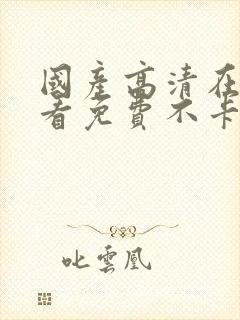 國產高清在
看免費不卡
叱雲凰